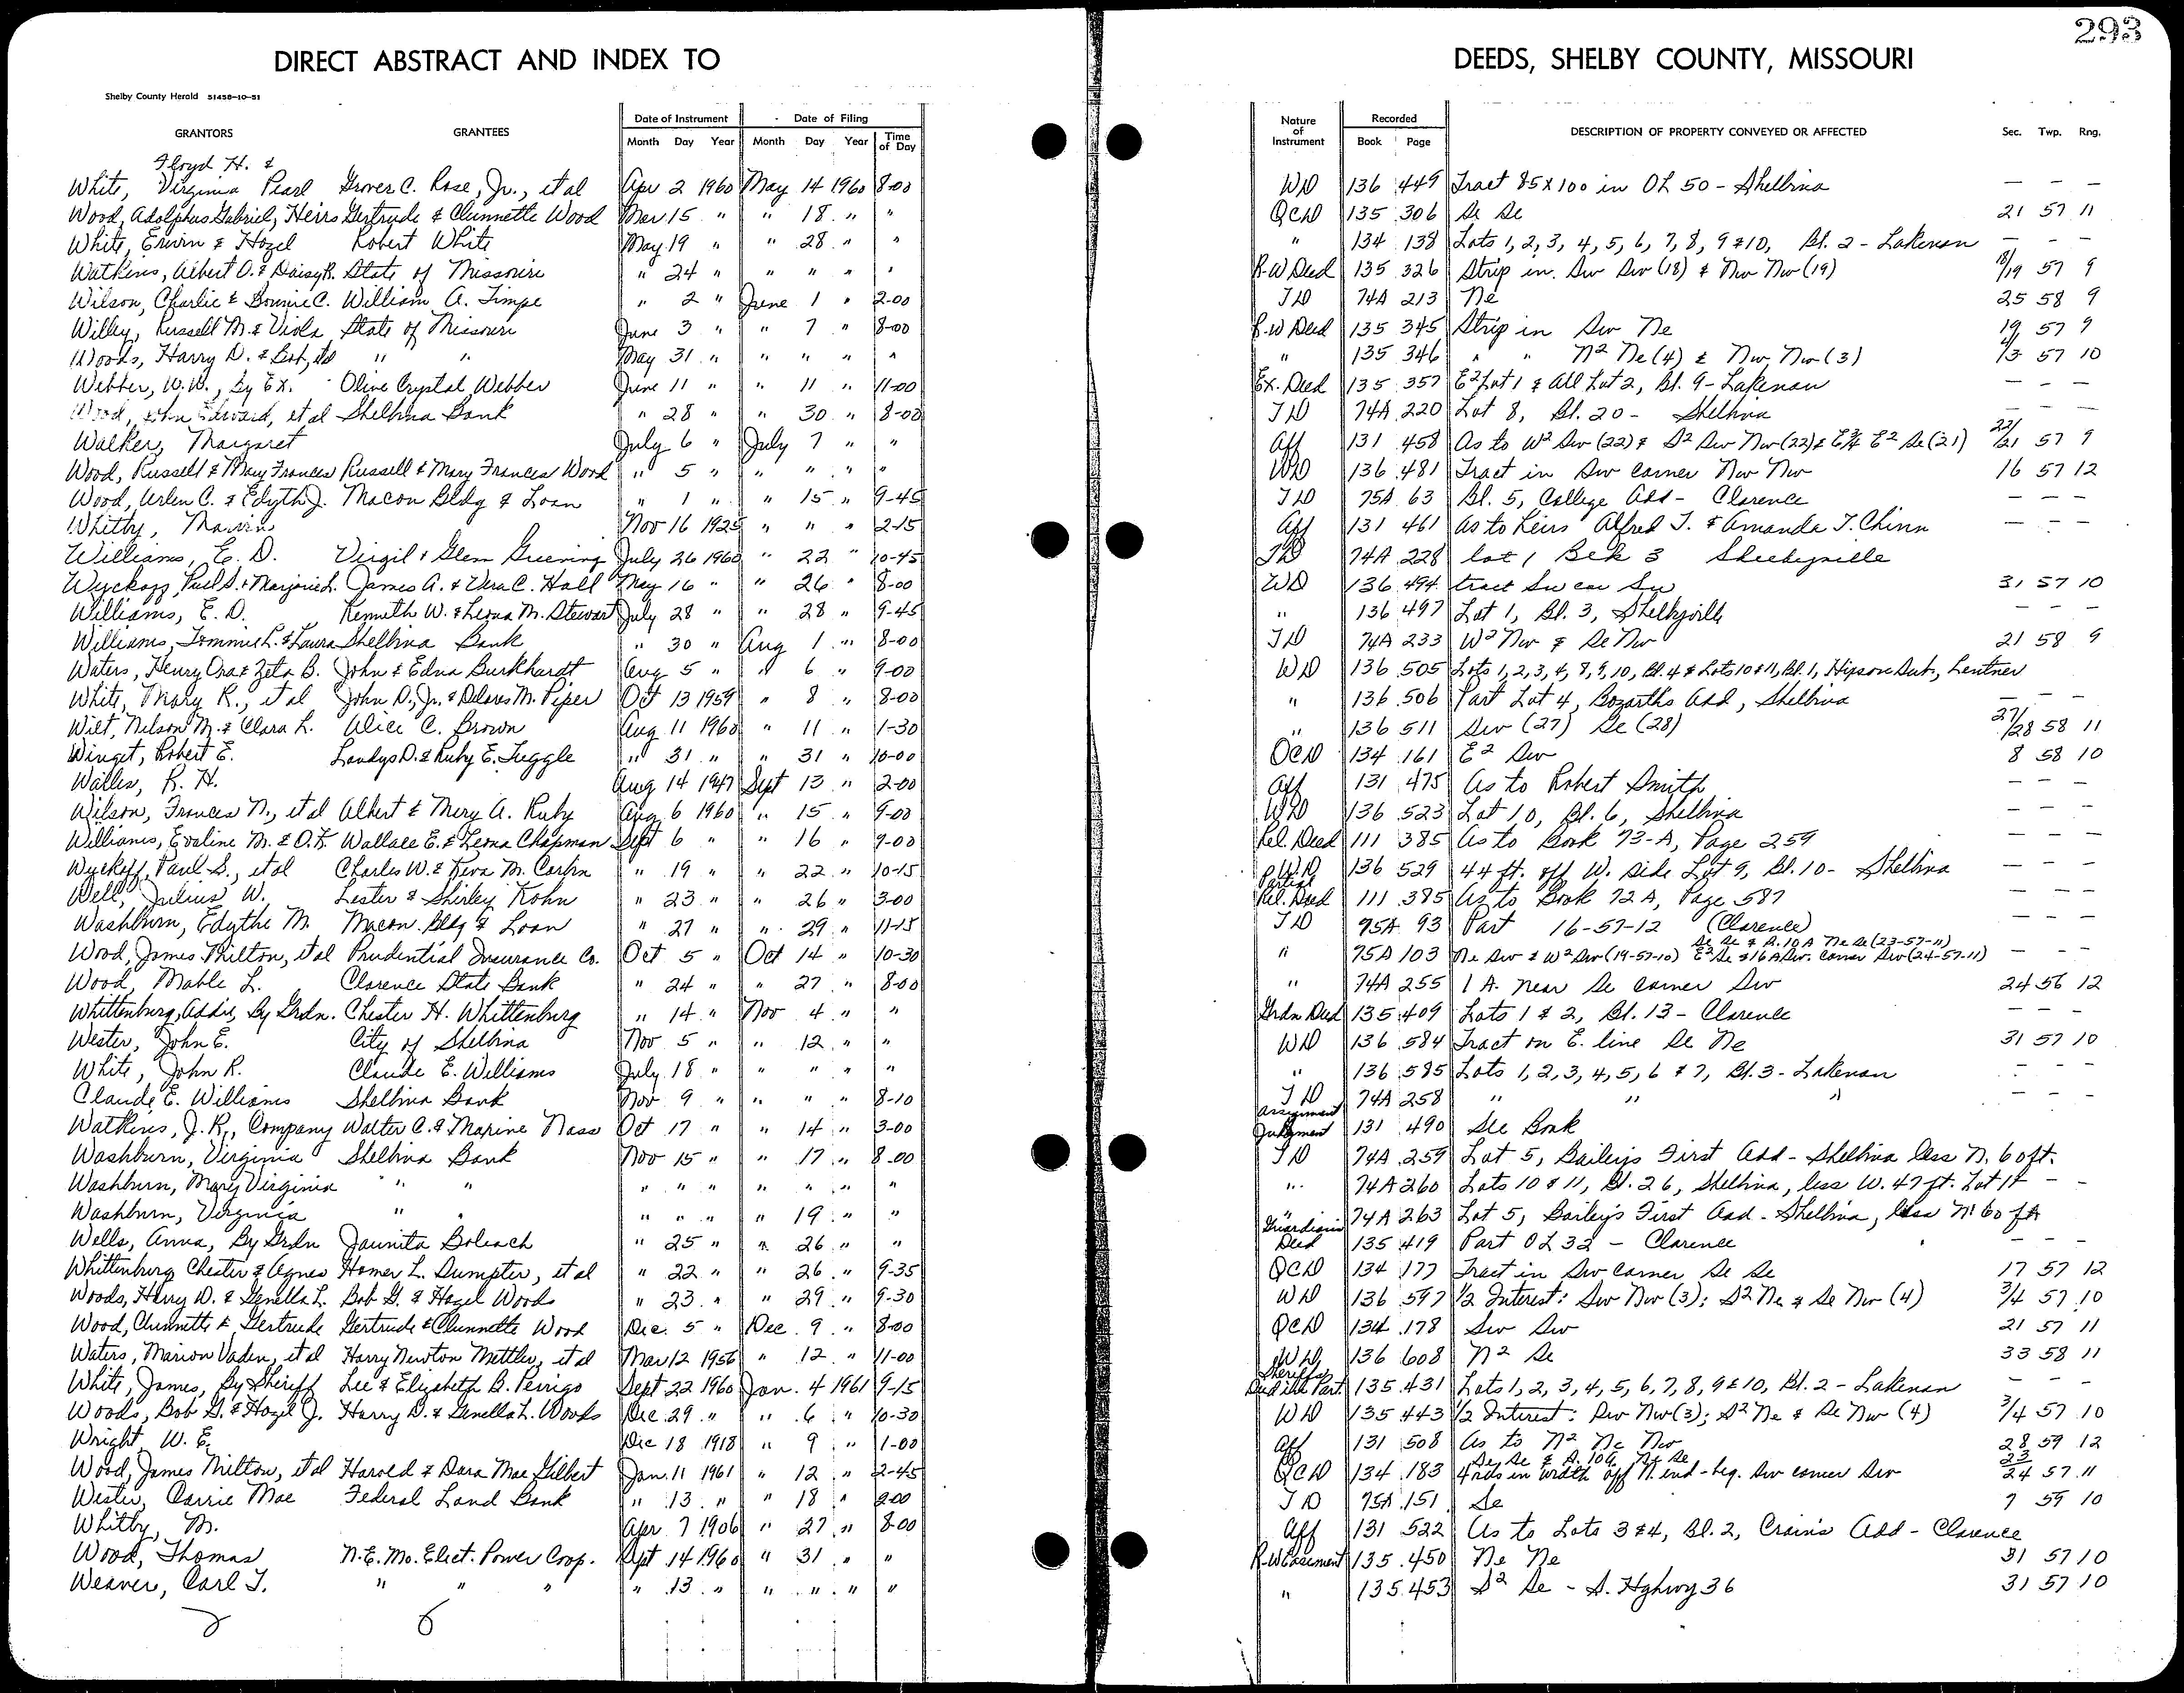 293
DIRECT ABSTRACT AND INDEX TO DEEDS, SHELBY COUNTY, MISSOURI
Shelby County Herald 51458-10-51
GRANTORS GRANTEES Date of Instrument Month Day Year Date of Filing Month Day Year Time of Day Nature of Instrument Recorded Book Page DESCRIPTION OF PROPERTY CONVEYED OR AFFECTED Sec. Twp. Rng.
Floyd H. &
White, Virginia Pearl Grover C. Rose, Jr., et al Apr 2 1960 May 14 1960 8-00 WD 136 449 Tract 85 X 100 in OL 50 - Shelbina — — —
Wood, Adolphus Gabriel, Heirs Gertrude & Clunnette Wood Mar 15 " " 18 " " QCD 135 306 Se Se 21 57 11
White, Erwin & Hazel Robert White May 19 " " 28 " " " 134 138 Lots 1, 2, 3, 4, 5, 6, 7, 8, 9 & 10, Bl. 2 - Lakenan — — —
Watkins, Albert O. & Daisy R. State of Missouri " 24 " " " " " R-W Deed 135 326 Strip in Sw Sw (18) & Nw Nw (19) 18/19 57 9
Wilson, Charlie & Bonnie C. William A. Timpe " 2 " June 1 " 2-00 TD 74A 213 Ne 25 58 9
Willey, Russell M. & Viola State of Missouri June 3 " " 7 " 8-00 R-W Deed 135 345 Strip in Sw Ne 19 57 9
Woods, Harry D. & , et al " " May 31 " " " " " " 135 346 " " N2 Ne (4) & Nw Nw (3) 4/3 57 10
Webber, W. W., by Ex. Olive Crystal Webber June 11 " " 11 " 11-00 Ex. Deed 135 357 E2 Lot 1 & All Lot 2, Bl. 9 - Lakenan — — —
Wood, John Edward, et al Shelbina Bank " 28 " " 30 " 8-00 TD 74A 220 Lot 8, Bl. 20 - Shelbina — — —
Walker, Margaret July 6 " July 7 " " Aff 131 458 As to W2 Sw (22) & S2 Sw Nw (22) & E2 Se (21) 22/21 57 9
Wood, Russell & Mary Frances Russell & Mary Frances Wood " 5 " " " " " WD 136 481 Tract in Sw corner Nw Nw 16 57 12
Wood, Arlen C. & Edyth J. Macon Bldg & Loan " 1 " " 15 " 9-45 TD 75A 63 Bl. 5, College Add - Clarence — — —
Whitby, Marvin Nov 16 1925 " " " 2-15 Aff 131 461 As to heirs Alfred T. & Amanda T. Chinn — — —
Williams, E. D. Virgil & Glem Greening July 26 1960 " 22 " 10-45 TD 74A 228 lot 1 Blk 3 Shelbyville
Wyckoff, Paul S. & Marjorie L. James A. & Vera C. Hall May 16 " " 26 " 8-00 WD 136 494 tract Sw cor Sw 31 57 10
Williams, E. D. Kenneth W. & Leona M. Stewart July 28 " " 28 " 9-45 " 136 497 Lot 1, Bl. 3, Shelbyville — — —
Williams, Tommie L. & Laura Shelbina Bank " 30 " Aug 1 " 8-00 TD 74A 233 W2 Nw & Se Nw 21 58 9
Waters, Henry Ora & Zeta B. John & Edna Burkhardt Aug 5 " " 6 " 9-00 WD 136 505 Lots 1, 2, 3, 4, 8, 9, 10, Bl. 4 & Lots 10 & 11, Bl. 1, Hixson Sub., Lentner
White, Mary R., et al John D., Jr. & Delores M. Piper Oct 13 1959 " 8 " 8-00 " 136 506 Part Lot 4, Bozarths Add, Shelbina — — —
Wilt, Nelson M. & Clara L. Alice C. Brown Aug 11 1960 " 11 " 1-30 " 136 511 Sw (27) Se (28) 27/28 58 11
Winget, Robert E. Landys D. & Ruby E. Tuggle " 31 " " 31 " 10-00 QCD 134 161 E2 Sw 8 58 10
Wailes, R. H. Aug 14 1947 Sept 13 " 2-00 Aff 131 475 As to Robert Smith — — —
Wilson, Frances N., et al Albert & Mery A. Ruby Aug 6 1960 " 15 " 9-00 WD 136 523 Lot 10, Bl. 6, Shelbina — — —
Williams, Evaline M. & O.K. Wallace E. & Leona Chapman Sept 6 " " 16 " 9-00 Rel. Deed 111 385 As to Book 73-A, Page 259 — — —
Wyckoff, Paul S., et al Charles W. & Reva M. Carkin " 19 " " 22 " 10-15 WD 136 529 44 ft. off W. side Lot 9, Bl. 10 - Shelbina — — —
Well, Julius W. Lester & Shirley Kohn " 23 " " 26 " 3-00 Partial Rel. Deed 111 395 As to Book 72A, Page 587 — — —
Washburn, Edythe M. Macon Bldg & Loan " 27 " " 29 " 11-15 TD 75A 93 Part 16-57-12 (Clarence) — — —
Wood, James Milton, et al Prudential Insurance Co. Oct 5 " Oct 14 " 10-30 " 75A 103 Ne Sw & W2 Sw (19-57-10) Se Se & S. 10 A Ne Se (23-57-11) E2 Se & 16 A Sw. corner Sw (24-57-11) — — —
Wood, Mable L. Clarence State Bank " 24 " " 27 " 8-00 " 74A 255 1 A. near Se corner Sw 24 56 12
Whittenburg, Addie, By Grdn. Chester H. Whittenburg " 14 " Nov 4 " " Grdn Deed 135 409 Lots 1 & 2, Bl. 13 - Clarence — — —
Wester, John E. City of Shelbina Nov 5 " " 12 " " WD 136 584 Tract on E. line Se Ne 31 57 10
White, John R. Claude E. Williams July 18 " " " " " " 136 585 Lots 1, 2, 3, 4, 5, 6 & 7, Bl. 3 - Lakenan — — —
Claude E. Williams Shelbina Bank Nov 9 " " " " 8-10 TD 74A 258 " " " — — —
Watkins, J. R., Company Walter C. & Maxine Nass Oct 17 " " 14 " 3-00 Assignment Judgment 131 490 See Book
Washburn, Virginia Shelbina Bank Nov 15 " " 17 " 8-00 TD 74A 259 Lot 5, Bailey's First Add - Shelbina less N. 60 ft.
Washburn, Mary Virginia " " " " " " " " " " 74A 260 Lots 10 & 11, Bl. 26, Shelbina, less W. 47 ft. Lot 11 — —
Washburn, Virginia " " " " " " 19 " " " 74A 263 Lot 5, Bailey's First Add - Shelbina, less N 60 ft
Wells, Anna, By Grdn Jaunita Boleach " 25 " " 26 " " Guardian Deed 135 419 Part OL 32 - Clarence — — —
Whittenburg Chester & Agnes Homer L. Dumpter, et al " 22 " " 26 " 9-35 QCD 134 177 Tract in Sw corner Se Se 17 57 12
Woods, Harry D. & Genella L. Bob G. & Hazel Woods " 23 " " 29 " 9-30 WD 136 597 1/2 Interest: Sw Nw (3); S2 Ne & Se Nw (4) 3/4 57 10
Wood, Clunnette & Gertrude Gertrude & Clunnette Wood Dec. 5 " Dec. 9 " 8-00 QCD 134 178 Sw Sw 21 57 11
Waters, Marion Vaden, et al Harry Newton Mettler, et al Mar 12 1956 " 12 " 11-00 WD 136 608 N2 Se 33 58 11
White, James, By Sheriff Lee & Elizabeth B. Perrigo Sept 22 1960 Jan. 4 1961 9-15 Sheriff's Deed in Part. 135 431 Lots 1, 2, 3, 4, 5, 6, 7, 8, 9 & 10, Bl. 2 - Lakenan — — —
Woods, Bob G. & Hazel J. Harry D. & Genella L. Woods Dec. 29 " " 6 " 10-30 WD 135 443 1/2 Interest: Sw Nw (3); S2 Ne & Se Nw (4) 3/4 57 10
Wright, W. E. Dec 18 1918 " 9 " 1-00 Aff 131 508 As to N2 Ne Nw 28 59 12
Wood, James Milton, et al Harold & Dara Mae Gilbert Jan. 11 1961 " 12 " 2-45 QCD 134 183 Se Se & S. 10 A. Ne Se 4 rds in width off N. end - beg. Sw corner Sw 23/24 57 11
Wester, Carrie Mae Federal Land Bank " 13 " " 18 " 9-00 TD 75A 151 Se 7 59 10
Whitby, M. Apr 7 1906 " 27 " 8-00 Aff 131 522 As to Lots 3 & 4, Bl. 2, Crain's Add - Clarence
Wood, Thomas N.E. Mo. Elect. Power Coop. Sept 14 1960 " 31 " " R-W Easement 135 450 Ne Ne 31 57 10
Weaver, Carl T. " " " " 13 " " " " " " 135 453 S2 Se - S. Hghwy 36 31 57 10